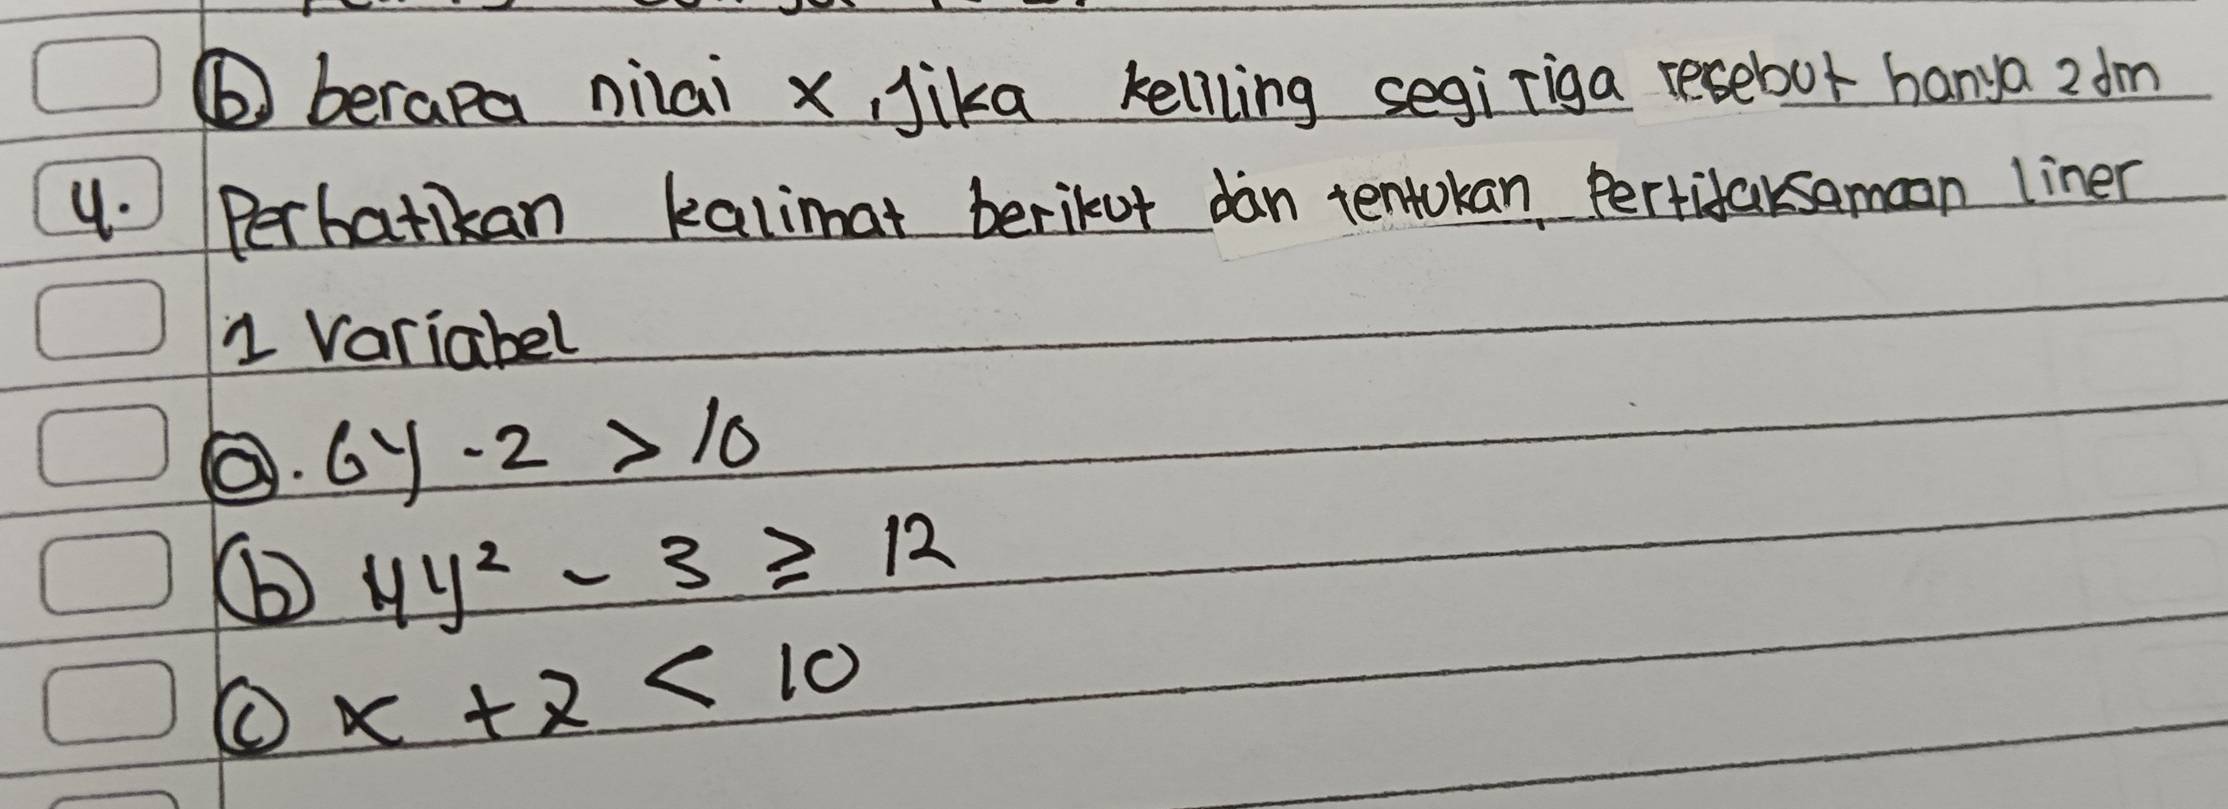 (b) berapa nilai x, Jika keliling segitiga tersebut hanya 2 dm
4. Perhatikan kalimat berikut dan tentukan, Pertidaksamaan liner
1 Variabel
(a). 6y - 2 > 10
(b) 4y² - 3 ≥ 12
(c) x + 2 < 10